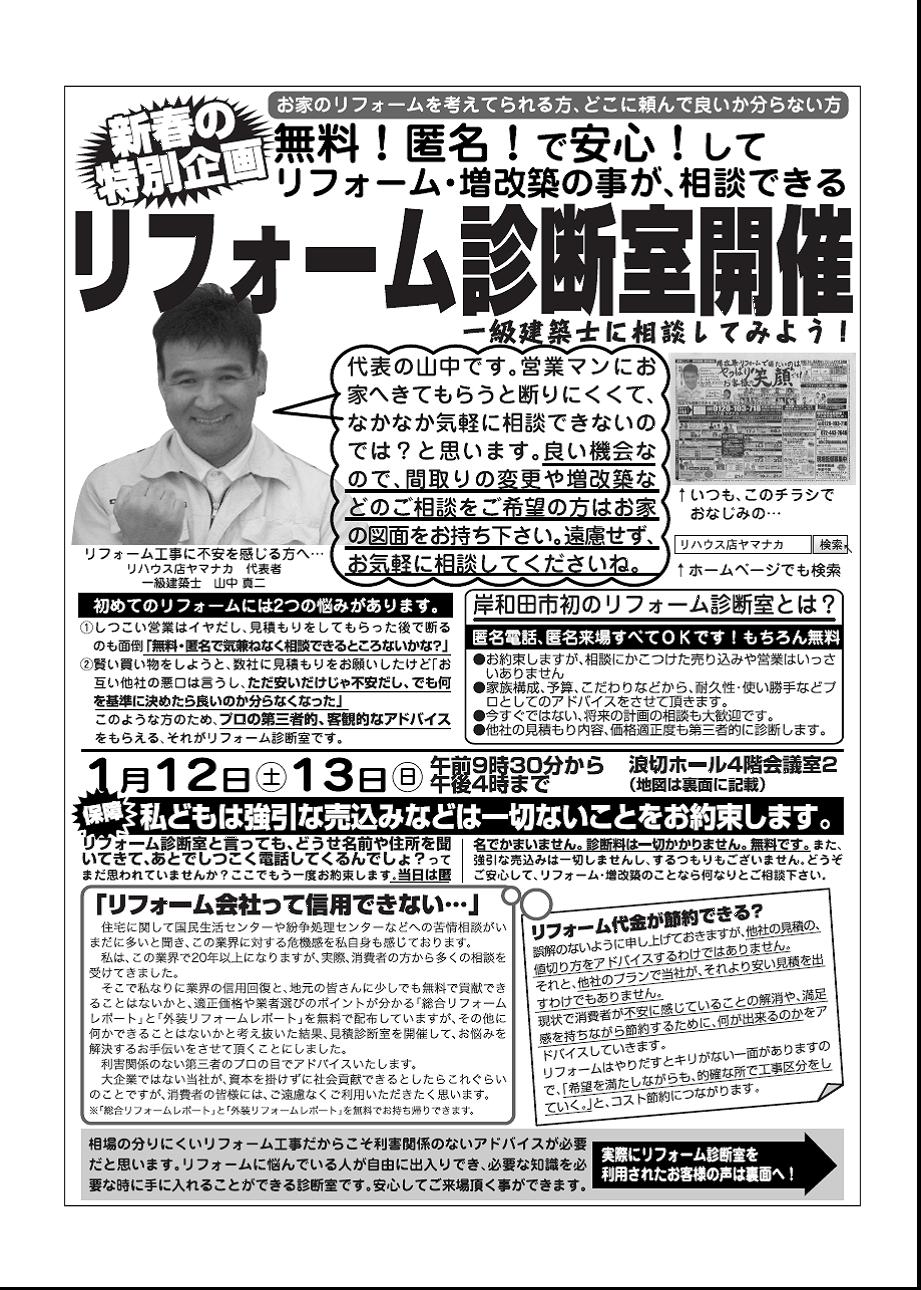 お家のリフォームを考えてられる方、どこに頼んで良いか分らない方
新春の
特別企画
無料！匿名！で安心！して
リフォーム・増改築の事が、相談できる
リフォーム診断室開催
一級建築士に相談してみよう！
代表の山中です。営業マンにお
家へきてもらうと断りにくくて、
なかなか気軽に相談できないの
では？と思います。良い機会な
ので、間取りの変更や増改築な
どのご相談をご希望の方はお家
の図面をお持ち下さい。遠慮せず、
お気軽に相談してくださいね。
やっぱり笑顔
0120-103-716
↑いつも、このチラシで
おなじみの…
リハウス店ヤマナカ 検索
↑ホームページでも検索
リフォーム工事に不安を感じる方へ…
リハウス店ヤマナカ 代表者
一級建築士 山中 真二
初めてのリフォームには2つの悩みがあります。
①しつこい営業はイヤだし、見積もりをしてもらった後で断る
のも面倒「無料・匿名で気兼ねなく相談できるところないかな？」
②賢い買い物をしようと、数社に見積もりをお願いしたけど「お
互い他社の悪口は言うし、ただ安いだけじゃ不安だし、でも何
を基準に決めたら良いのか分らなくなった」
このような方のため、プロの第三者的、客観的なアドバイス
をもらえる、それがリフォーム診断室です。
岸和田市初のリフォーム診断室とは？
匿名電話、匿名来場すべてOKです！もちろん無料
●お約束しますが、相談にかこつけた売り込みや営業はいっさ
いありません
●家族構成、予算、こだわりなどから、耐久性・使い勝手などプ
ロとしてのアドバイスをさせて頂きます。
●今すぐではない、将来の計画の相談も大歓迎です。
●他社の見積もり内容、価格適正度も第三者的に診断します。
1月12日㊏13日㊐ 午前9時30分から
午後4時まで
浪切ホール4階会議室2
（地図は裏面に記載）
保障 私どもは強引な売込みなどは一切ないことをお約束します。
リフォーム診断室と言っても、どうせ名前や住所を聞
いてきて、あとでしつこく電話してくるんでしょ？って
まだ思われていませんか？ここでもう一度お約束します。当日は匿
名でかまいません。診断料は一切かかりません。無料です。また、
強引な売込みは一切しませんし、するつもりもございません。どうぞ
ご安心して、リフォーム・増改築のことなら何なりとご相談下さい。
「リフォーム会社って信用できない…」
住宅に関して国民生活センターや紛争処理センターなどへの苦情相談がい
まだに多いと聞き、この業界に対する危機感を私自身も感じております。
私は、この業界で20年以上になりますが、実際、消費者の方から多くの相談を
受けてきました。
そこで私なりに業界の信用回復と、地元の皆さんに少しでも無料で貢献でき
ることはないかと、適正価格や業者選びのポイントが分かる「総合リフォーム
レポート」と「外装リフォームレポート」を無料で配布していますが、その他に
何かできることはないかと考え抜いた結果、見積診断室を開催して、お悩みを
解決するお手伝いをさせて頂くことにしました。
利害関係のない第三者のプロの目でアドバイスいたします。
大企業ではない当社が、資本を掛けずに社会貢献できるとしたらこれぐらい
のことですが、消費者の皆様には、ご遠慮なくご利用いただきたく思います。
※「総合リフォームレポート」と「外装リフォームレポート」を無料でお持ち帰りできます。
リフォーム代金が節約できる？
誤解のないように申し上げておきますが、他社の見積の、
値切り方をアドバイスするわけではありません。
それと、他社のプランで当社が、それより安い見積を出
すわけでもありません。
現状で消費者が不安に感じていることの解消や、満足
感を持ちながら節約するために、何が出来るのかをア
ドバイスしていきます。
リフォームはやりだすとキリがない一面がありますの
で、「希望を満たしながらも、的確な所で工事区分をし
ていく。」と、コスト節約につながります。
相場の分りにくいリフォーム工事だからこそ利害関係のないアドバイスが必要
だと思います。リフォームに悩んでいる人が自由に出入りでき、必要な知識を必
要な時に手に入れることができる診断室です。安心してご来場頂く事ができます。
実際にリフォーム診断室を
利用されたお客様の声は裏面へ！